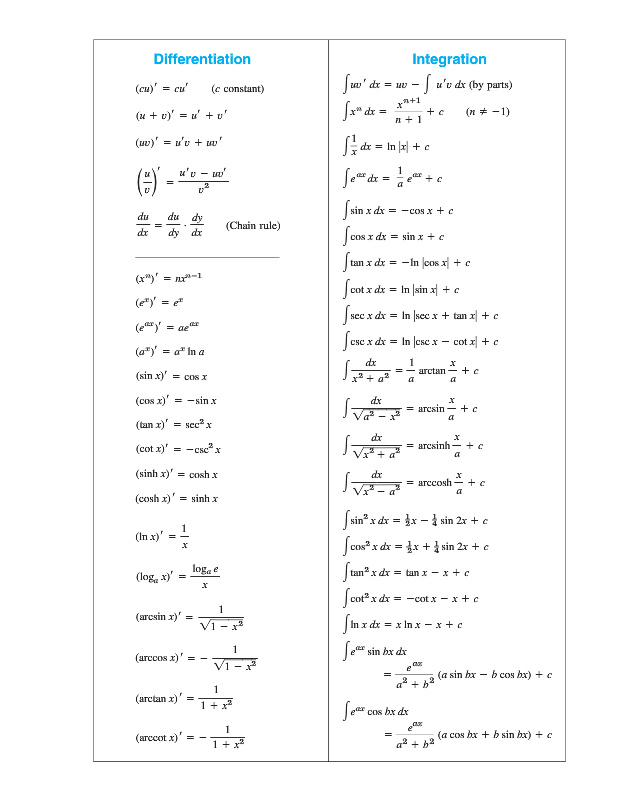 Differentiation
(cu)' = cu' (c constant)
(u + v)' = u' + v'
(uv)' = u'v + uv'
(u/v)' = (u'v − uv')/v²
du/dx = du/dy · dy/dx (Chain rule)
(xⁿ)' = nxⁿ⁻¹
(eˣ)' = eˣ
(eᵃˣ)' = aeᵃˣ
(aˣ)' = aˣ ln a
(sin x)' = cos x
(cos x)' = −sin x
(tan x)' = sec² x
(cot x)' = −csc² x
(sinh x)' = cosh x
(cosh x)' = sinh x
(ln x)' = 1/x
(logₐ x)' = logₐ e/x
(arcsin x)' = 1/√(1 − x²)
(arccos x)' = − 1/√(1 − x²)
(arctan x)' = 1/(1 + x²)
(arccot x)' = − 1/(1 + x²)
Integration
∫uv' dx = uv − ∫ u'v dx (by parts)
∫xⁿ dx = xⁿ⁺¹/(n + 1) + c (n ≠ −1)
∫1/x dx = ln |x| + c
∫eᵃˣ dx = 1/a eᵃˣ + c
∫sin x dx = −cos x + c
∫cos x dx = sin x + c
∫tan x dx = −ln |cos x| + c
∫cot x dx = ln |sin x| + c
∫sec x dx = ln |sec x + tan x| + c
∫csc x dx = ln |csc x − cot x| + c
∫dx/(x² + a²) = 1/a arctan x/a + c
∫dx/√(a² − x²) = arcsin x/a + c
∫dx/√(x² + a²) = arcsinh x/a + c
∫dx/√(x² − a²) = arccosh x/a + c
∫sin² x dx = ½x − ¼ sin 2x + c
∫cos² x dx = ½x + ¼ sin 2x + c
∫tan² x dx = tan x − x + c
∫cot² x dx = −cot x − x + c
∫ln x dx = x ln x − x + c
∫eᵃˣ sin bx dx
= eᵃˣ/(a² + b²) (a sin bx − b cos bx) + c
∫eᵃˣ cos bx dx
= eᵃˣ/(a² + b²) (a cos bx + b sin bx) + c